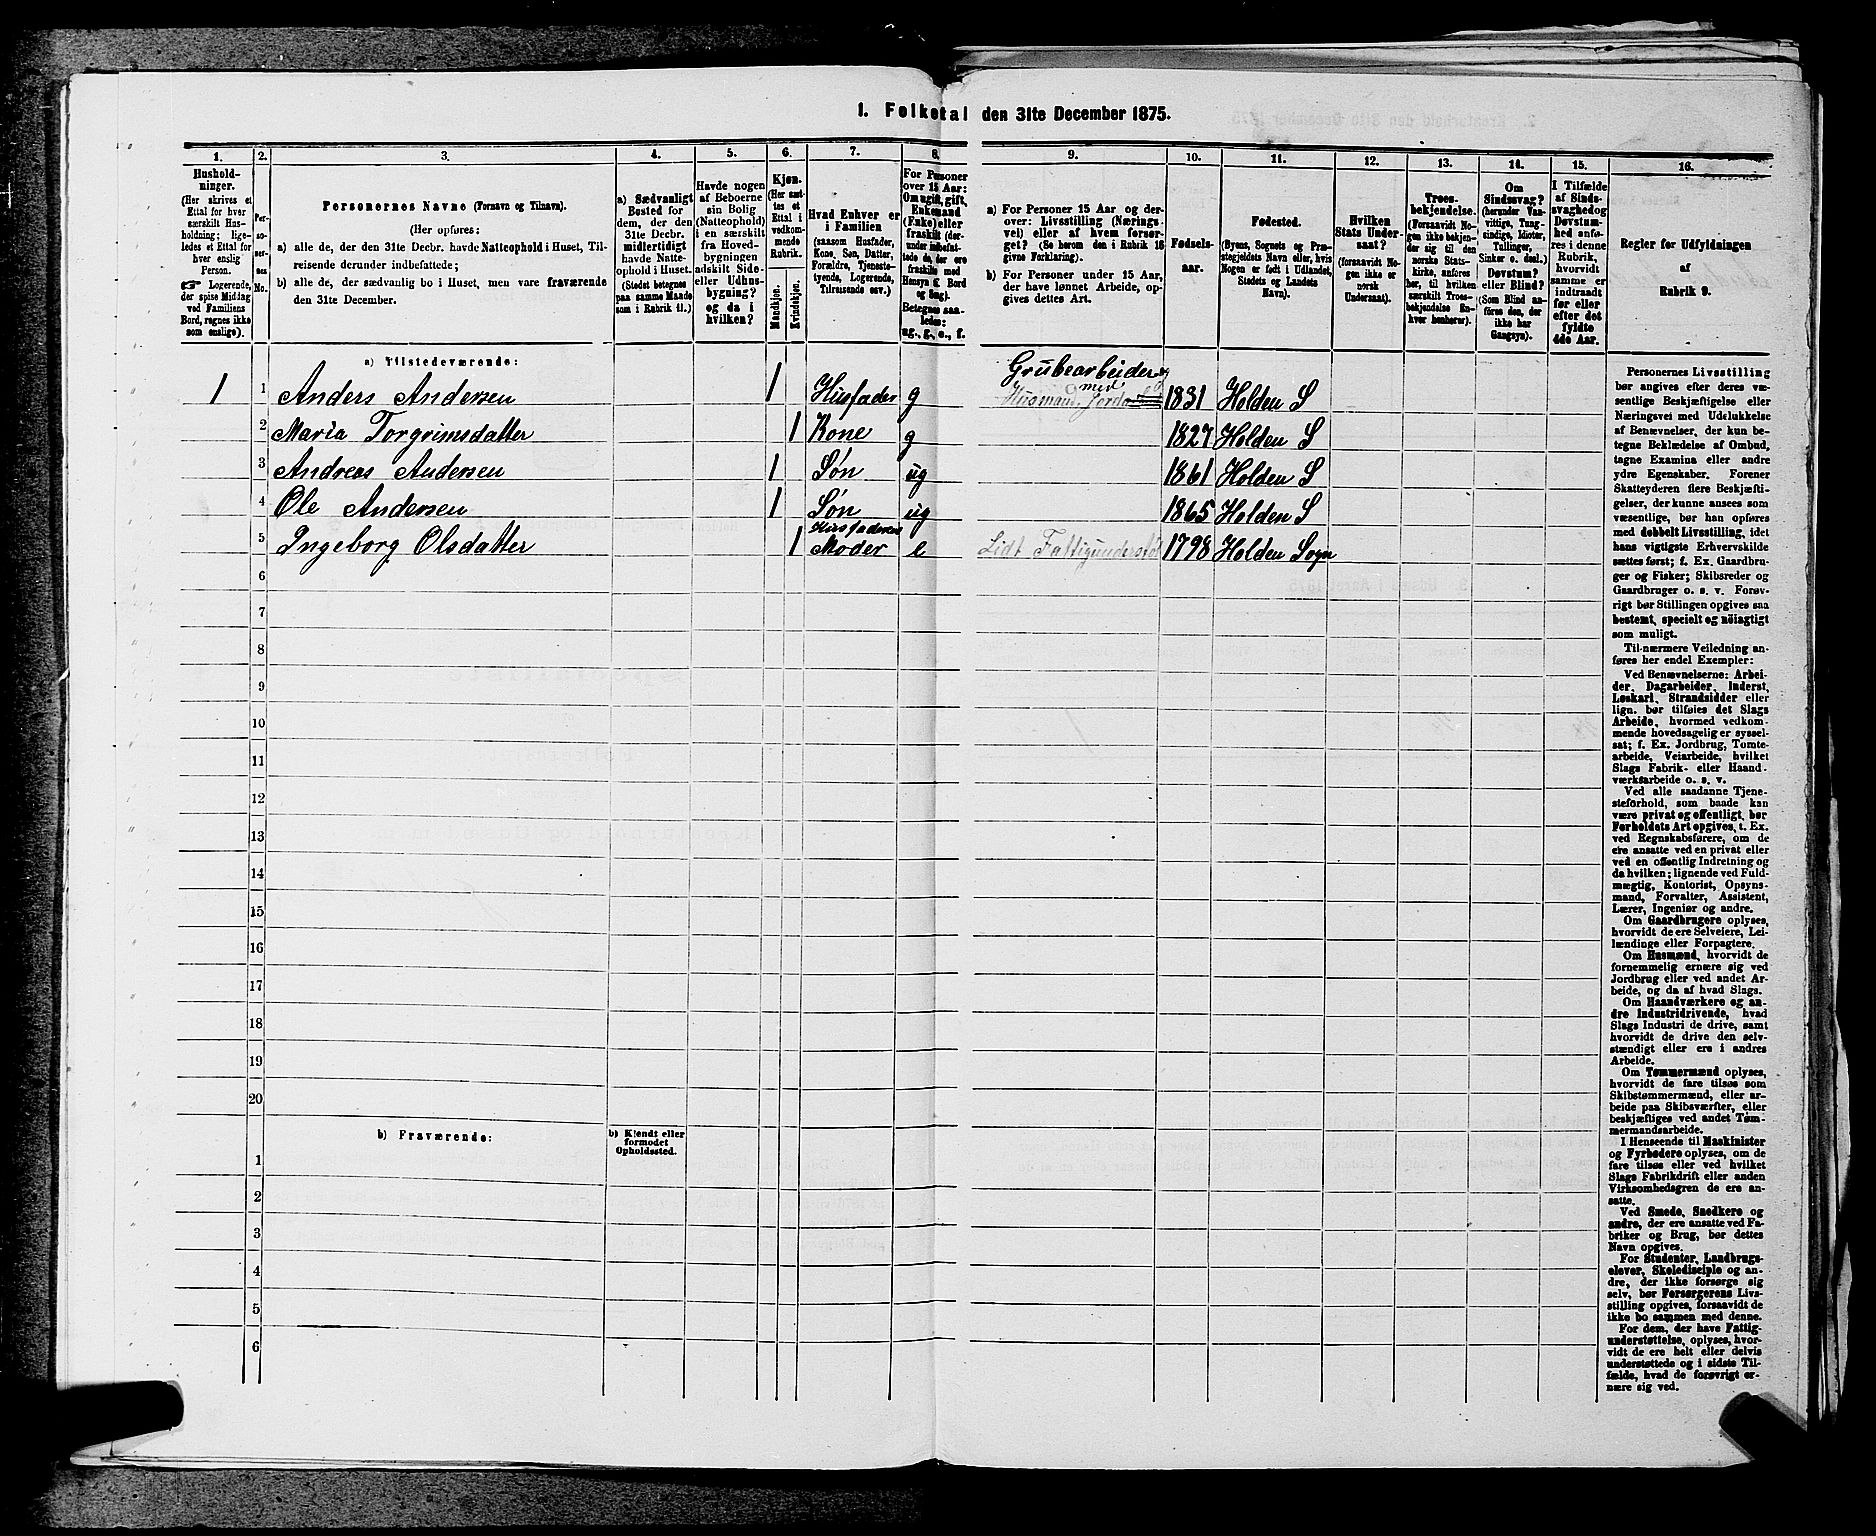 1. Folketal den 31te December 1875.
1.
Hushold-
ninger.
(Her skrives et
Ettal for hver
særskilt Hus-
holdning; lige-
ledes et Ettal for
hver enslig
Person.
☞ Logerende,
der spise Middag
ved Familiens
Bord, regnes ikke
som enslige).
2.
Per-
so-
ner-
nes
No.
3.
Personernes Navne (Fornavn og Tilnavn).
(Her opføres:
a) alle de, der den 31te Decbr. havde Natteophold i Huset, Til-
reisende derunder indbefattede;
b) alle de, der sædvanlig bo i Huset, men vare fraværende
den 31te December.
4.
a) Sædvanligt
Bosted for
dem, der den
31te Decbr.
midlertidigt
havde Natte-
ophold i Huset.
(Stedet betegnes
paa samme Maade
som i Rubrik 11.)
5.
Havde nogen
af Beboerne
sin Bolig
(Natteophold)
i en særskilt
fra Hoved-
bygningen
adskilt Side-
eller Udhus-
bygning?
og da i
hvilken?
6.
Kjøn.
(Her sæt-
tes et
Ettal i
vedkom-
mende
Rubrik.
Mandkjøn.
Kvindekjøn.
7.
Hvad Enhver er
i Familien
(saasom Husfader,
Kone, Søn, Datter,
Forældre, Tjeneste-
tyende, Logerende,
Tilreisende osv.)
8.
For Personer
over 15 Aar:
Om ugift, gift,
Enkemand
(Enke) eller
fraskilt (der-
under indbefat-
tede de, der ere
fraskilte med
Hensyn til Bord
og Seng).
Betegnes saa-
ledes:
ug., g., e., f.
9.
a) For Personer 15 Aar og der-
over: Livsstilling (Nærings-
vei) eller af hvem forsør-
get? (Se herom den i Rubrik 16
givne Forklaring).
b) For Personer under 15 Aar,
der have lønnet Arbeide, op-
gives dettes Art.
10.
Fødsels-
aar.
11.
Fødested.
(Byens, Sognets og Præ-
stegjeldets Navn eller, hvis
Nogen er født i Udlandet,
Stedets og Landets
Navn).
12.
Hvilken
Stats Under-
saat?
(forsaavidt No-
gen ikke er
norsk
Undersaat).
13.
Troes-
bekjendelse.
(Forsaavidt No-
gen ikke bekjen-
der sig til den
norske Stats-
kirke, anføres
her, til hvilken
særskilt Troes-
bekjendelse En-
hver henhører).
14.
Om
Sindssvag?
(herunder Van-
vittige, Tung-
sindige, Idioter,
Tullinger,
Sinker o. desl.).
Døvstum?
eller Blind?
(Som Blind an-
føres den, der
ikke har
Gangsyn).
15.
I Tilfælde
af Sinds-
svaghed og
Døvstum-
hed anfø-
res i denne
Rubrik,
hvorvidt
samme er
indtraadt
før eller
efter det
fyldte
4de Aar.
16.
Regler for Udfyldningen
af
Rubrik 9.
a) Tilstedeværende:
1 1 Anders Andersen 1 Husfader g Grubearbeider og
Husmand med Jord 1831 Holden S
2 Maria Torgrimsdatter 1 Kone g 1827 Holden S
3 Andreas Andersen 1 Søn ug 1861 Holden S
4 Ole Andersen 1 Søn ug 1865 Holden S
5 Ingeborg Olsdatter 1 Husfaderens
Moder e Lidt Fattigunderstøt 1798 Holden Sogn
6
7
8
9
10
11
12
13
14
15
16
17
18
19
20
b) Fraværende:
b) Kjendt eller
formodet
Opholdssted.
1
2
3
4
5
6
Personernes Livsstilling
bør angives efter deres væ-
sentlige Beskjæftigelse eller
Næringsvei med Udelukkelse
af Benævnelser, der kun be-
tegne Beklædelse af Ombud,
tagne Examina eller andre
ydre Egenskaber. Forener
Skatteyderen flere Beskjæfti-
gelser, der kunne ansees som
væsentlige, bør han opføres
med dobbelt Livsstilling, idet
hans vigtigste Erhvervskilde
sættes først; f. Ex. Gaardbru-
ger og Fisker; Skibsreder og
Gaardbruger o. s. v. Forøv-
rigt bør Stillingen opgives saa
bestemt, specielt og nøiagtigt
som muligt.
Til nærmere Veiledning an-
føres her endel Exempler:
Ved Benævnelserne: Arbei-
der, Dagarbeider, Inderst,
Løskarl, Strandsidder eller
lign. bør tilføies det Slags
Arbeide, hvormed vedkom-
mende hovedsagelig er syssel-
sat; f. Ex. Jordbrug, Tomte-
arbeide, Veiarbeide, hvilket
Slags Fabrik- eller Haand-
værksarbeide o. s. v.
Ved alle saadanne Tjene-
steforhold, som baade kan
være privat og offentligt, bør
Forholdets Art opgives, t. Ex.
ved Regnskabsførere, om de
ere ansatte ved en privat eller
ved en offentlig Indretning og
da hvilken; lignende ved Fuld-
mægtig, Kontorist, Opsyns-
mand, Forvalter, Assistent,
Lærer, Ingeniør og andre.
Om Gaardbrugere oplyses,
hvorvidt de ere Selveiere, Lei-
lændinge eller Forpagtere.
Om Husmænd, hvorvidt de
fornemmelig ernære sig ved
Jordbrug eller ved andet Ar-
beide, og da af hvad Slags.
Om Haandværkere og an-
dre Industridrivende, hvad
Slags Industri de drive, samt
hvorvidt de drive den selv-
stændigt eller ere i andres
Arbeide.
Om Tømmermænd oplyses,
hvorvidt de fare tilsøs som
Skibstømmermænd, eller ar-
beide paa Skibsværfter, eller
beskjæftiges ved andet Tøm-
mermandsarbeide.
I Henseende til Maskinister
og Fyrbødere oplyses, om de
fare tilsøs eller ved hvilket
Slags Fabrikdrift eller anden
Virksomhedsgren de ere an-
satte.
Ved Smede, Snedkere og
andre, der ere ansatte ved Fa-
briker og Brug, bør dettes
Navn opgives.
For Studenter, Landbrugs-
elever, Skoledisciple og an-
dre, der ikke forsørge sig
selv, bør Forsørgerens Livs-
stilling opgives, forsaavidt de
ikke bo sammen med denne.
For dem, der have Fattig-
understøttelse, oplyses, hvor-
vidt de ere helt eller delvis
understøttede og i sidste Til-
fælde, hvad de forøvrigt er-
nære sig ved.